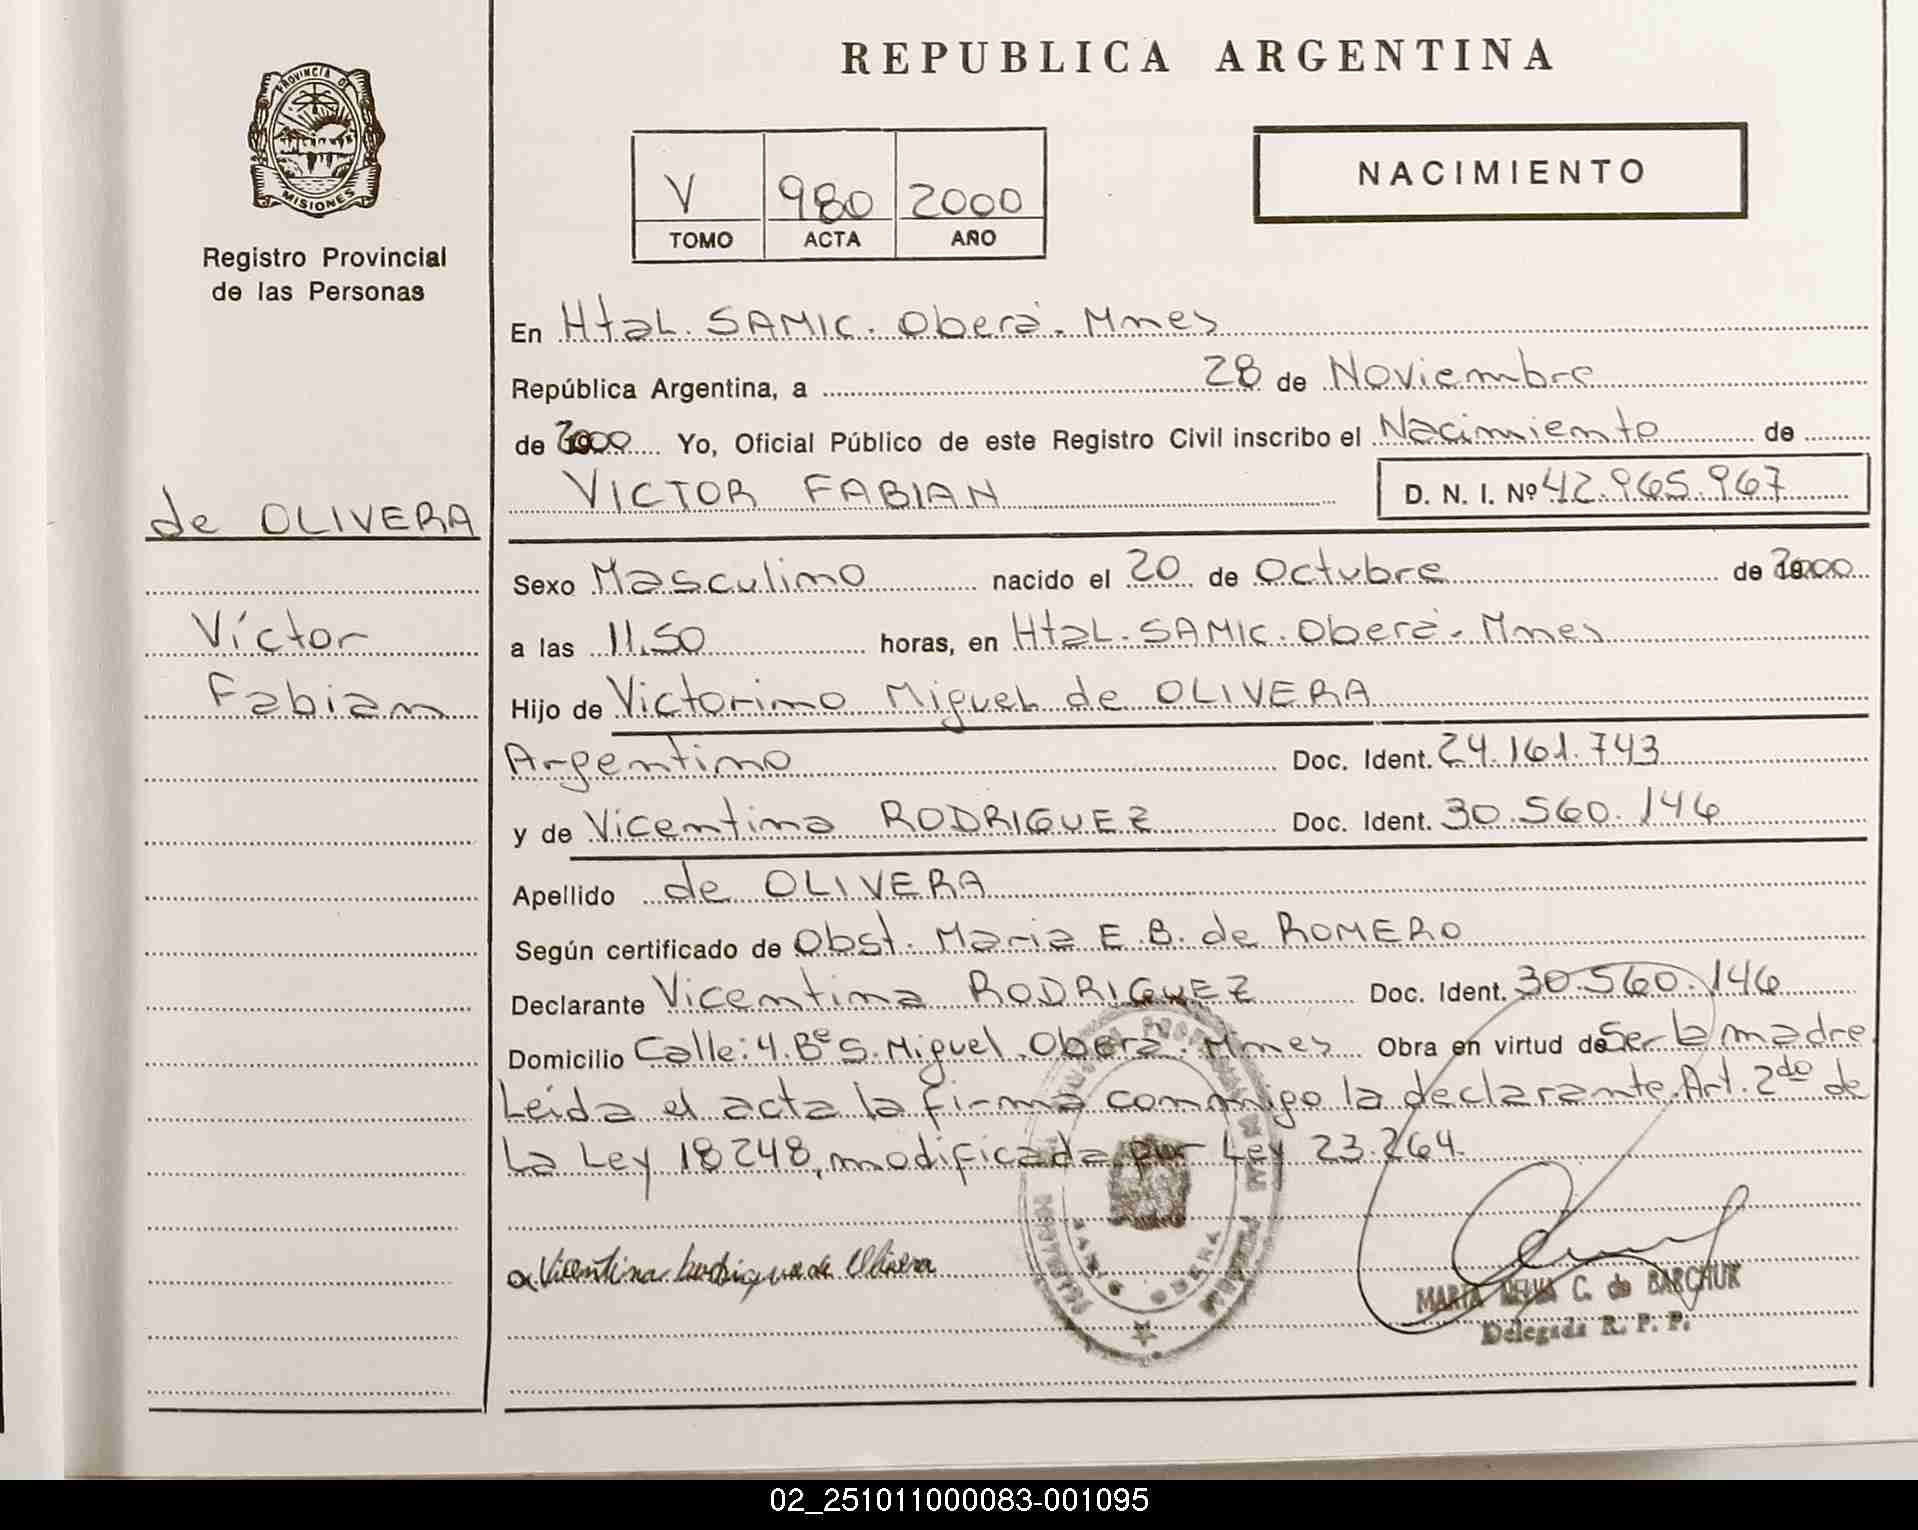 REPUBLICA ARGENTINA
PROVINCIA DE
MISIONES
Registro Provincial
de las Personas
V 980 2000
TOMO ACTA AÑO
NACIMIENTO
En Htal. SAMIC. Oberá. Mnes
República Argentina, a 28 de Noviembre
de 2000 Yo, Oficial Público de este Registro Civil inscribo el Nacimiento de
VICTOR FABIAN D. N. I. Nº 42.965.967
de OLIVERA
Víctor
Fabian
Sexo Masculino nacido el 20 de Octubre de 2000
a las 11.50 horas, en Htal. SAMIC. Oberá. Mnes
Hijo de Victorino Miguel de OLIVERA
Argentino Doc. Ident. 24.161.743
y de Vicentina RODRIGUEZ Doc. Ident. 30.560.146
Apellido de OLIVERA
Según certificado de Obst. Maria E. B. de ROMERO
Declarante Vicentina RODRIGUEZ Doc. Ident. 30.560.146
Domicilio Calle: 4. Bº S. Miguel. Oberá. Mnes Obra en virtud de Ser la madre
Leída el acta la firma conmigo la declarante. Art. 2do de
La Ley 18248, modificada por Ley 23.264.
Vicentina Rodrigue de Olivera
MARIA C. de BARCHUK
Delegada R. P. P.
02_251011000083-001095